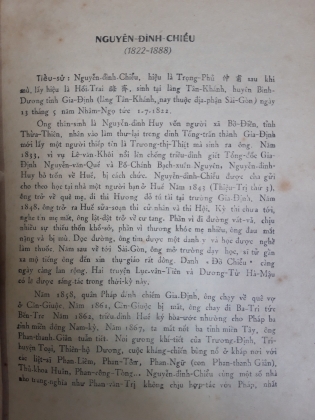 NGUYỄN-ĐÌNH-CHIỂU
(1822-1888)
Tiểu-sử : Nguyễn-đình-Chiểu, hiệu là Trọng-Phủ sau khi
mù, lấy hiệu là Hối-Trai sinh tại làng Tân-Khánh, huyện Bình-
Dương tỉnh Gia-Định (làng Tân-Khánh, nay thuộc địa-phận Sài-Gòn) ngày
13 tháng 5 năm Nhâm-Ngọ tức 1.7.1822.
Ông thân-sinh là Nguyễn-đình Huy vốn người xã Bồ-Điền, tỉnh
Thừa-Thiên, nhân vào làm thư-lại trong dinh Tổng-trấn thành Gia-Định
mới lấy một người thiếp tên là Trương-thị-Thiệt mà sinh ra ông. Năm
1833, vì vụ Lê-văn-Khôi nổi lên chống triều-đình giết Tổng-đốc Gia-
Định Nguyễn-văn-Quế và Bố-Chính Bạch-xuân Nguyên, Nguyễn-đình-
Huy bỏ trốn về Huế, bị cách chức. Nguyễn-đình-Chiểu được cha gửi
cho theo học tại nhà một người bạn ở Huế Năm 1843 (Thiệu-Trị thứ 3),
ông trở về quê mẹ, đi thi Hương đỗ tú tài tại trường Gia-Định. Năm
1848, ông trở ra Huế sửa-soạn thi cử nhân và thi Hội. Kỳ thi chưa tới,
nghe tin mẹ mất, ông lật-đật trở về cư tang. Phần vì đi đường vất-vả, chịu
nhiều sự thiếu thốn khổ-sở, phần vì thương khóc mẹ nhiều, ông đau mắt
nặng và bị mù. Dọc đường, ông tìm được một danh y và học được nghề
làm thuốc. Năm sau về tới Sài-Gòn, ông mở trường dạy học, sĩ tử gần
xa mộ tiếng ông đến xin thụ-giáo rất đông. Danh « Đồ Chiểu » càng
ngày càng lan rộng. Hai truyện Lục-vân-Tiên và Dương-Từ Hà-Mậu
có lẽ được sáng-tác trong thời-kỳ này.
Năm 1858, quân Pháp đánh chiếm Gia-Định, ông chạy về quê vợ
ở Cần-Giuộc. Năm 1861, Cần-Giuộc bị mất, ông chạy đi Ba-Tri tức
Bến-Tre Năm 1862, triều-đình Huế ký hòa-ước nhường cho Pháp ba
tỉnh miền đông Nam-kỳ. Năm 1867, ta mất nốt ba tỉnh miền Tây, ông
Phan-thanh-Giản tuẫn tiết. Nối gương khí-tiết của Trương-Định, Tri-
huyện Toại, Thiên-hộ Dương, cuộc kháng-chiến bùng nổ ở khắp nơi với
các liệt-sĩ Phan Liêm, Phan-Tôn, Phan-Ngữ (con Phan-thanh Giản),
Thủ-khoa Huân, Phan-công-Tòng... Nguyễn-đình-Chiểu cùng một số nhà
nho trung-nghĩa như Phan-văn-Trị không chịu hợp-tác với Pháp, nhất